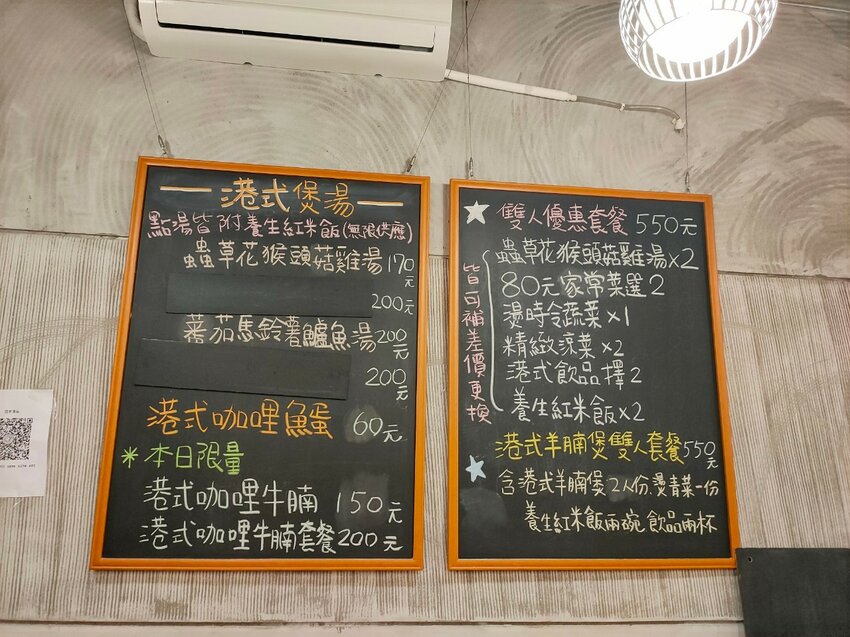 一 港式煲湯 一
點湯皆附養生紅米飯(無限供應)
蟲草花猴頭菇雞湯170元
200元
蕃茄馬鈴薯鱸魚湯200元
200元
港式咖哩魚蛋 60元
*本日限量
港式咖哩牛腩 150元
港式咖哩牛腩套餐200元
雙人優惠套餐 550元
皆可補差價更換
蟲草花猴頭菇雞湯×2
80元家常菜選2
燙時令蔬菜×1
精緻涼菜×2
港式飲品擇2
養生紅米飯×2
港式羊腩煲雙人套餐550元
含港式羊腩煲2人份、燙青菜一份
養生紅米飯兩碗 飲品兩杯